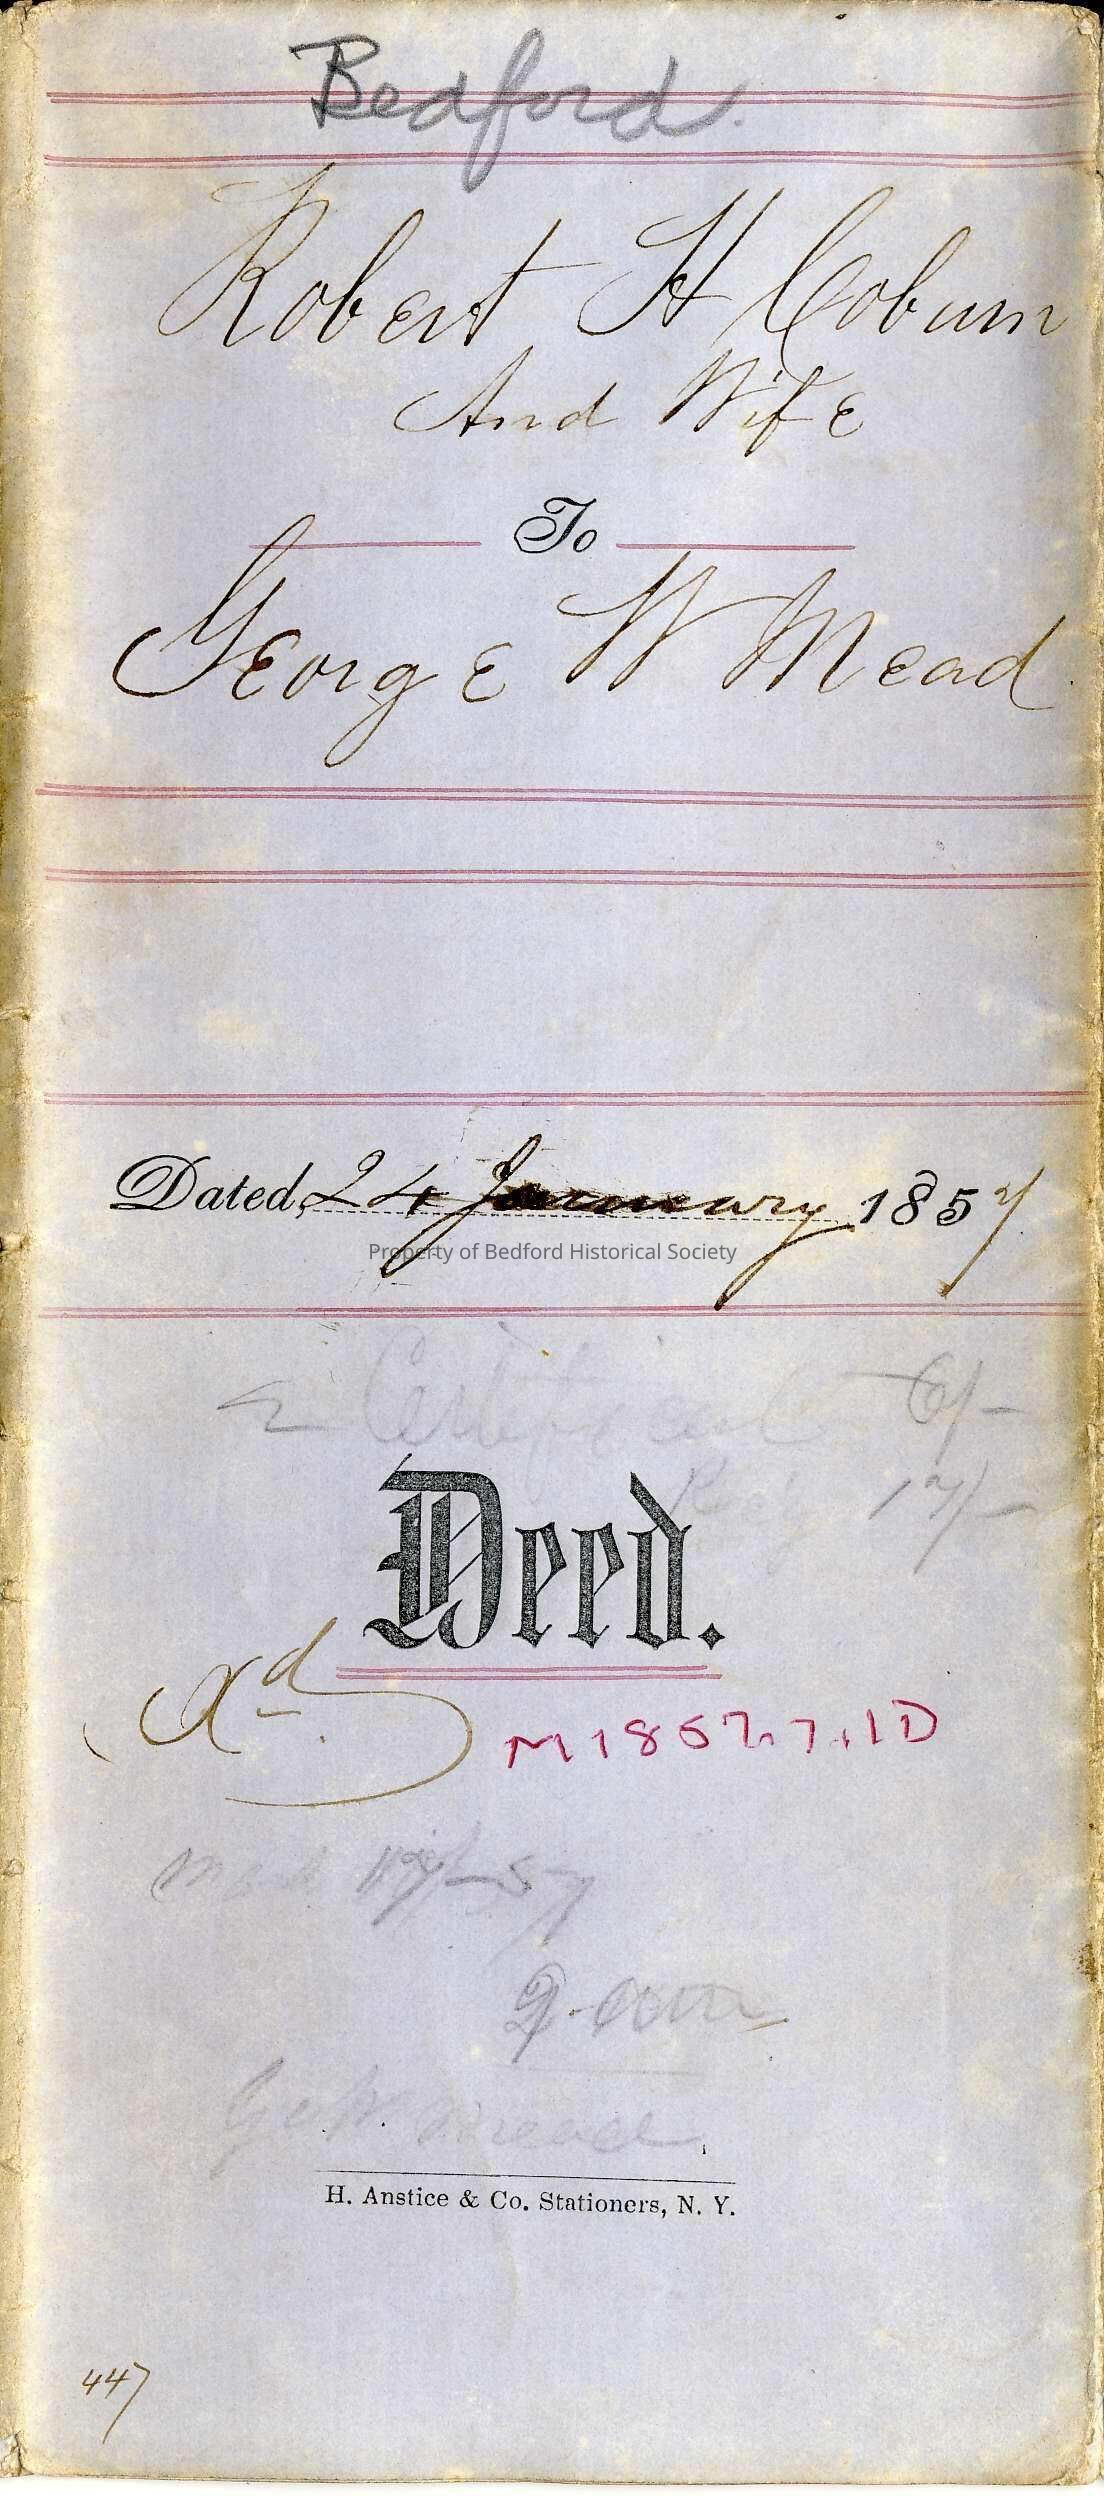 Bedford.
Robert H Coburn
And Wife
To
George W Mead
Dated, 24 January 1857
Property of Bedford Historical Society
6/-
Deed.
M1857.7.1D
57
9. am
Geo W. Mead
H. Anstice & Co. Stationers, N. Y.
447